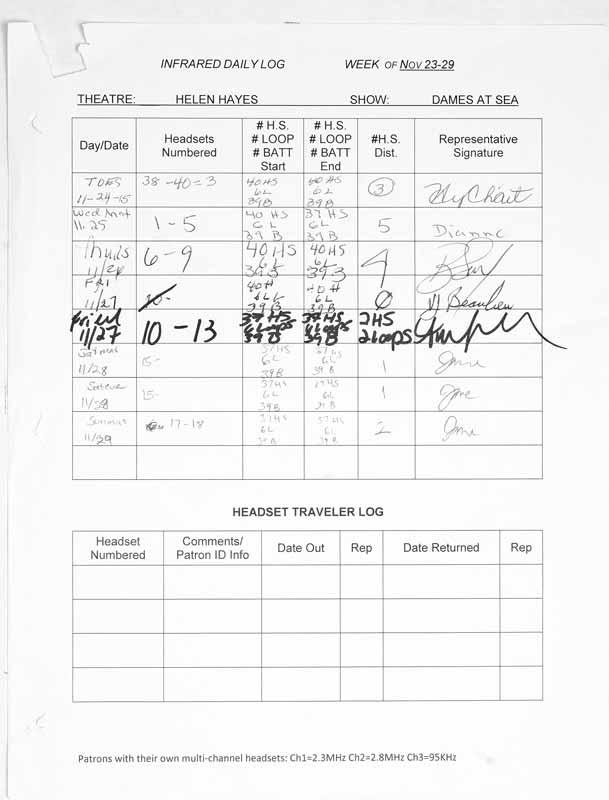 INFRARED DAILY LOG WEEK OF NOV 23-29
THEATRE: HELEN HAYES SHOW: DAMES AT SEA
Day/Date Headsets Numbered # H.S. # LOOP # BATT Start # H.S. # LOOP # BATT End #H.S. Dist. Representative Signature
TUES 11-24-15 38-40=3 40 HS 6L 39B 40 HS 6L 39B 3
Wed Mat 11.25 1-5 40 HS 6L 39B 37 HS 6L 39B 5 Dianne
Thurs 6-9 40HS 6L 39B 40HS 6L 39B 4
FRI 11/27 10- 40H 6LL 39B 40H 6L 39B 0
11/27 10-13 37HS 6Loops 39B 37HS 6Loops 39B 2HS 2Loops
11/28 15- 37HS 6L 39B 37HS 6L 39B 1
11/28 15- 37HS 6L 39B 37HS 6L 39B 1
11/29 17-18 37HS 6L 39B 37HS 6L 39B 2
HEADSET TRAVELER LOG
Headset Numbered Comments/ Patron ID Info Date Out Rep Date Returned Rep
Patrons with their own multi-channel headsets: Ch1=2.3MHz Ch2=2.8MHz Ch3=95KHz